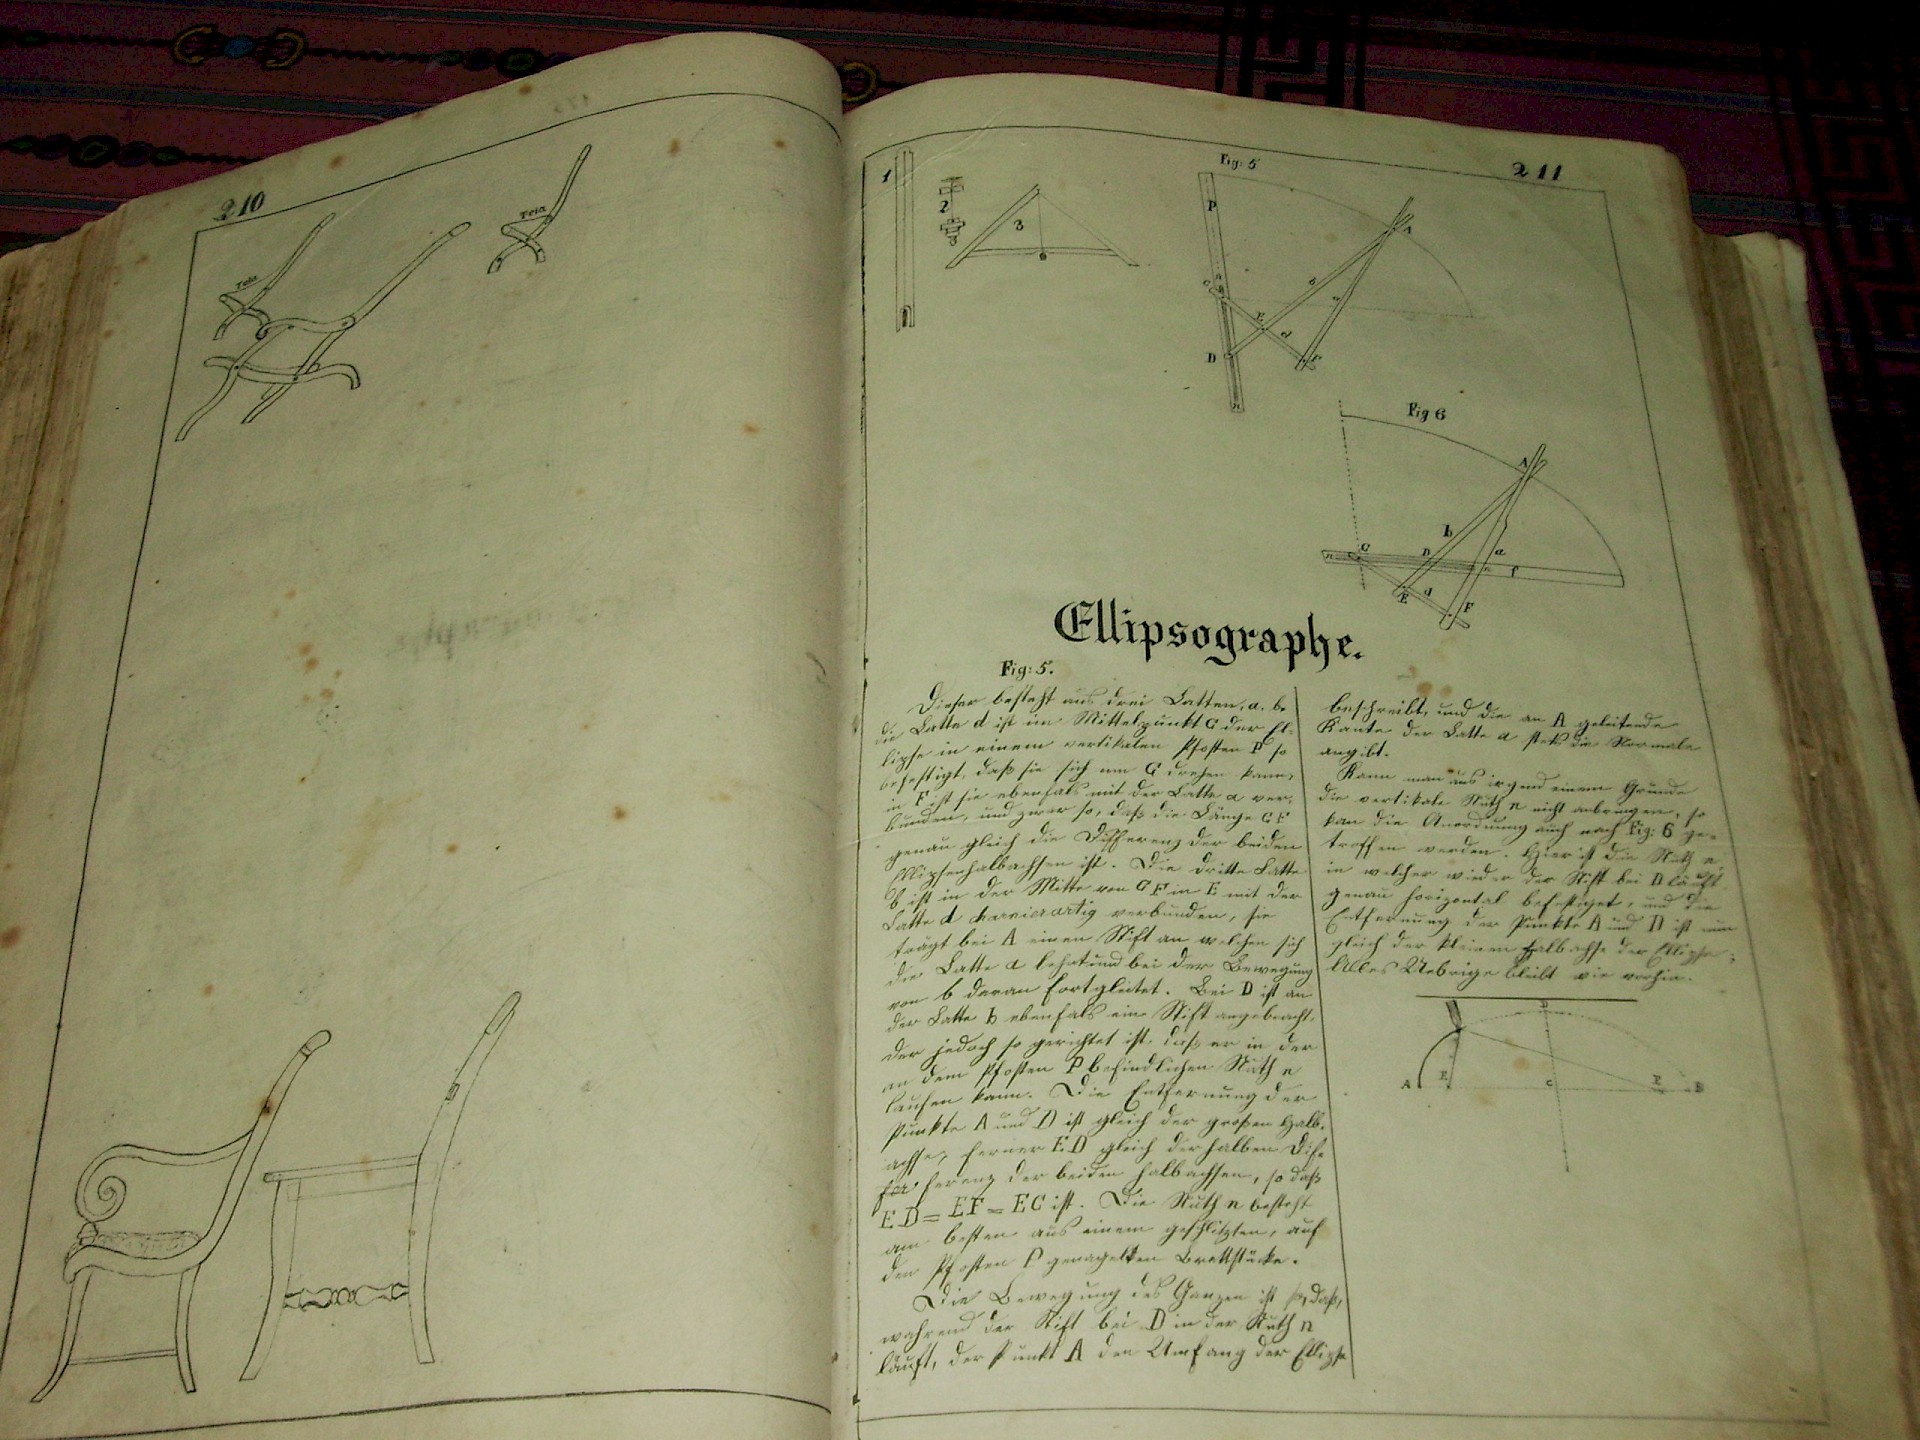 210
Tela
Tela
211
1
2
3
3
Fig: 5
P
A
C
b
a
E
d
D
F
n
Fig 6
A
b
C
D
a
n
f
E
d
F
Ellipsographe.
Fig: 5.
Dieser besteht aus drei Latten, a. b.
die Latte d ist im Mittelpunkt C der El-
lipse in einem vertikalen Pfosten P so
befestigt, daß sie sich um C drehen kann,
in F ist sie ebenfals mit der Latte a ver-
bunden, und zwar so, daß die Länge CF
genau gleich die Differenz der beiden
Ellipsenhalbachsen ist. Die dritte Latte
b ist in der Mitte von CF in E mit der
Latte dharnierartig verbunden, sie
trägt bei A einen Stift an welchen sich
die Latte a lehnt und bei der Bewegung
von b daran fortgleitet. Bei D ist an
der Latte b ebenfals ein Stift angebracht,
der jedoch so gerichtet ist, daß er in der
an dem Pfosten P befindlichen Nuth n
laufen kann. Die Entfernung der
Punkte A und D ist gleich der großen Halb-
achse, ferner ED gleich der halben Dif-
ferenz der beiden Halbachsen, so daß
ED = EF = EC ist. Die Nuth n besteht
am besten aus einem geschlitzten, auf
den Pfosten P genagelten Brettstücke.
Die Bewegung des Ganzen ist so, daß,
während der Stift bei D in der Nuth n
läuft, der Punkt A den Umfang der Ellipse
beschreibt, und die an A geleitende
Kante der Latte a stets die Normale
angibt.
Kann man aus irgend einem Grunde
die vertikale Nuth n nicht anbringen, so
kan die Anordnung auch nach Fig: 6 ge-
troffen werden. Hier ist die Nuth n
in welcher wieder der Stift bei D läuft
genau horizontal befestiget, und die
Entfernung der Punkte A und D ist nun
gleich der kleinen Halbachse der Ellipse;
Alles Uebrige bleibt wie vorhin.
D
A
F
C
F
B